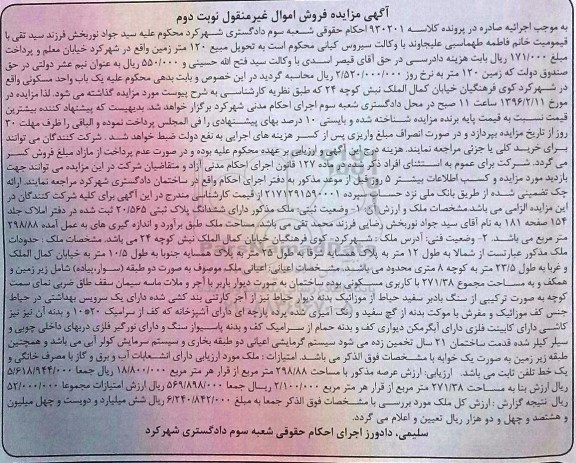 آگهی مزایده فروش اموال غیرمنقول نوبت دوم
به موجب اجرائیه صادره در پرونده کلاسه ۹۳۰۲۰۱ احکام حقوقی شعبه سوم دادگستری شهرکرد محکوم علیه سید جواد نوربخش فرزند سید تقی با
قیمومیت خانم فاطمه طهماسبی علیجاوند با وکالت سیروس کیانی محکوم است به تحویل مبیع ۱۲۰ متر زمین واقع در شهرکرد خیابان معلم و پرداخت
۱۷۱/۰۰۰ ریال بابت هزینه دادرسی در حق آقای قیصر اسدی با وکالت سید فتح الله حسینی و ۵۵۰/۰۰۰ ریال به عنوان نیم عشر دولتی در حق
صندوق دولت که زمین ۱۲۰ متر به نرخ روز ۲/۵۲۰/۰۰۰/۰۰۰ ریال محاسبه گردید در این خصوص و بابت بدهی محکوم علیه یک باب واحد مسکونی واقع
در شهرکرد کوی فرهنگیان خیابان کمال الملک نبش کوچه ۲۴ که طبق نظریه کارشناسی به شرح پیوست مورد مزایده گذاشته می شود. لذا مزایده در
مورخ ۱۳۹۶/۲/۱۱ ساعت ۱۱ صبح در محل دادگستری شعبه سوم اجرای احکام مدنی شهرکرد برگزار خواهد شد. بدیهیست که پیشنهاد کننده بیشترین
قیمت نسبت به قیمت پایه برنده مزایده شناخته شده و بایستی ۱۰ درصد بهای پیشنهادی را فی المجلس پرداخت نموده و الباقی را ظرف مهلت ۳۰
روز از تاریخ مزایده بپردازد و در صورت انصراف مبلغ واریزی پس از کسر هزینه های اجرایی به نفع دولت ضبط خواهد شد. شرکت کنندگان می توانند
برای خرید کلی یا جزئی مراجعه نمایند. هزینه درج این آگهی و ارزیابی بر عهده محکوم علیه بوده و در صورت عدم پرداخت از مازاد مبلغ فروش کسر
می گردد. شرکت برای عموم به استثنای افراد ذکر شده در ماده ۱۲۷ قانون اجرای احکام مدنی آزاد و متقاضیان شرکت در این مزایده می توانند جهت
بازدید مورد مزایده و کسب اطلاعات بیشتر ۵ روز قبل از موعد مذکور به دفتر اجرای احکام واقع در ساختمان دادگستری شهرکرد مراجعه نمایند. ارائه
چک تضمینی شده از طریق بانک ملی نزد حساب سپرده ۲۱۷۱۲۹۱۵۹۰۰۱ از قیمت کارشناسی مندرج در این آگهی برای کلیه شرکت کنندگان در
این مزایده الزامی می باشد. مشخصات ملک و ارزش آن ۱- وضعیت ثبتی: ملک مذکور دارای ششدانگ پلاک ثبتی ۲۰/۵۶۵ ثبت شده در دفتر املاک جلد
۱۵۴ صفحه ۱۸۱ به نام آقای سید جواد نوربخش رضایی فرزند محمد تقی می باشد. مساحت ملک طبق برآورد و اندازه گیری های به عمل آمده ۲۹۸/۸۸
متر مربع می باشد. ۲- وضعیت فنی: آدرس ملک: شهرکرد، کوی فرهنگیان خیابان کمال الملک نبش کوچه ۲۴ می باشد. مشخصات ملک: حدودات
ملک مذکور عبارتست از شمالا به طول ۱۲ متر به پلاک همسایه شرقا به طول ۲۵ متر به پلاک همسایه جنوبا به طول ۱۰/۵ متر به خیابان کمال الملک
و غربا به طول ۲۳/۵ متر به کوچه ۸ متری محدود می باشد. مشخصات اعیانی: اعیانی ملک موصوف به صورت دو طبقه (سوارپیاده) شامل زیر زمین و
همکف و به مساحت مجموع ۲۷۱/۳۸ با کاربری مسکونی بوده ساختمان به صورت دیوار باربر با آجر و ملات ماسه سیمان سقف طاق ضربی نمای سمت
کوچه به صورت ترکیبی از سنگ بادبر سفید حیاط از موزائیک بدنه دیوار حیاط نیز از آجر کارتنی بند کشی شده دارای یک سرویس بهداشتی در حیاط
جنس کف موزائیک و مفرش با موکت بدنه از گچ سفید و رنگ آمیزی شده درب پارچه ای دارای آشپزخانه که کف از سرامیک ۳۰*۱۰ و بدنه آن نیز نیز
کاشی دارای کابینت فلزی دارای آبگرمکن دیواری کف و بدنه حمام از سرامیک کف و بدنه پاسیواز سنگ و دارای نورگیر فلزی دربهای داخلی چوبی و
سیلر کیلر شده قدمت ساختمان ۲۱ سال تخمین زده می شود سیستم گرمایشی اعیانی دو طبقه بخاری و سیستم سرمایش کولر آبی می باشد و همچنین
طبقه زیر زمین به صورت یک خوابه با مشخصات فوق الذکر می باشد. امتیازات: ملک مورد ارزیابی دارای انشعابات آب و برق و گاز با مصرف خانگی و
یک خط تلفن ثابت می باشد. ارزیابی: ارزش عرصه مذکور با مساحت ۲۹۸/۸۸ متر مربع از قرار هر متر مربع ۱۸/۸۰۰/۰۰۰ ریال جمعا ۵/۶۱۸/۹۴۴/۰۰۰
ریال ارزش بنا به مساحت ۲۷۱/۳۸ متر مربع از قرار هر متر مربع ۲/۱۰۰/۰۰۰ ریال جمعا ۵۶۹/۸۹۸/۰۰۰ ریال ارزش امتیازات مجموعا ۵۲/۰۰۰/۰۰۰
ریال نتیجه گزارش: ارزش کل ملک مورد بررسی با مشخصات فوق الذکر جمعا به مبلغ ۶/۲۴۰/۸۴۲/۰۰۰ ریال شش میلیارد و دویست و چهل میلیون
و هشتصد و چهل و دو هزار ریال تعیین و اعلام می گردد.
سلیمی، دادورز اجرای احکام حقوقی شعبه سوم دادگستری شهرکرد